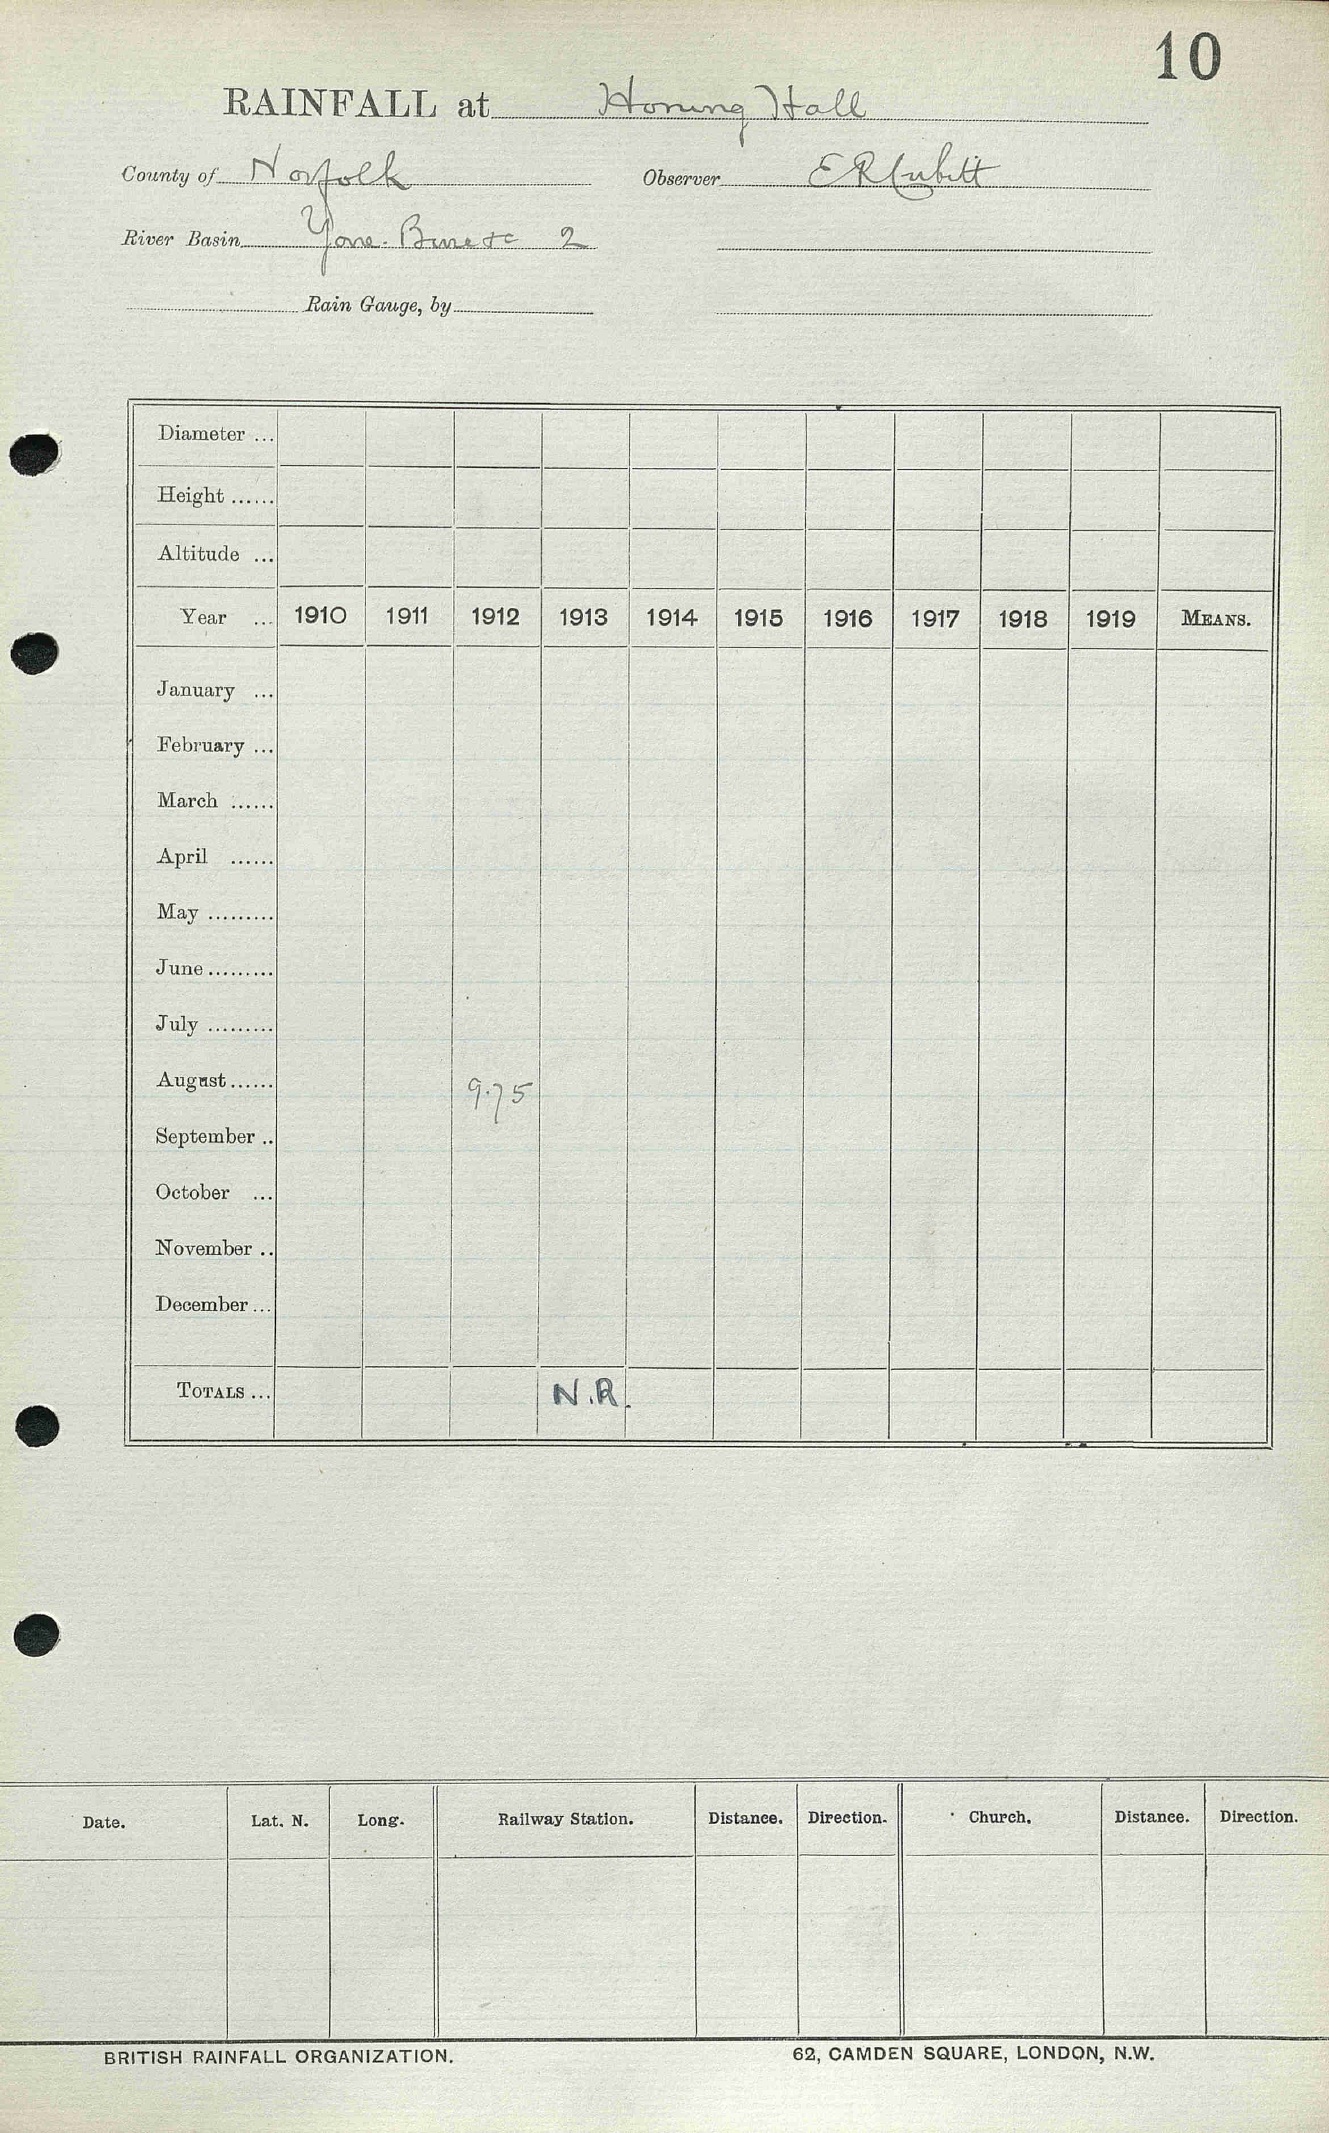 10
RAINFALL at Honing Hall
County of Norfolk Observer E R Cubitt
River Basin Yare. Bure &c 2
Rain Gauge, by
Diameter ...
Height ......
Altitude ...
Year ... 1910 1911 1912 1913 1914 1915 1916 1917 1918 1919 MEANS.
January ...
February ...
March ......
April ......
May .........
June .........
July .........
August ...... 9.75
September ..
October ...
November ..
December ...
TOTALS ... N.R.
Date. Lat. N. Long. Railway Station. Distance. Direction. Church. Distance. Direction.
BRITISH RAINFALL ORGANIZATION. 62, CAMDEN SQUARE, LONDON, N.W.